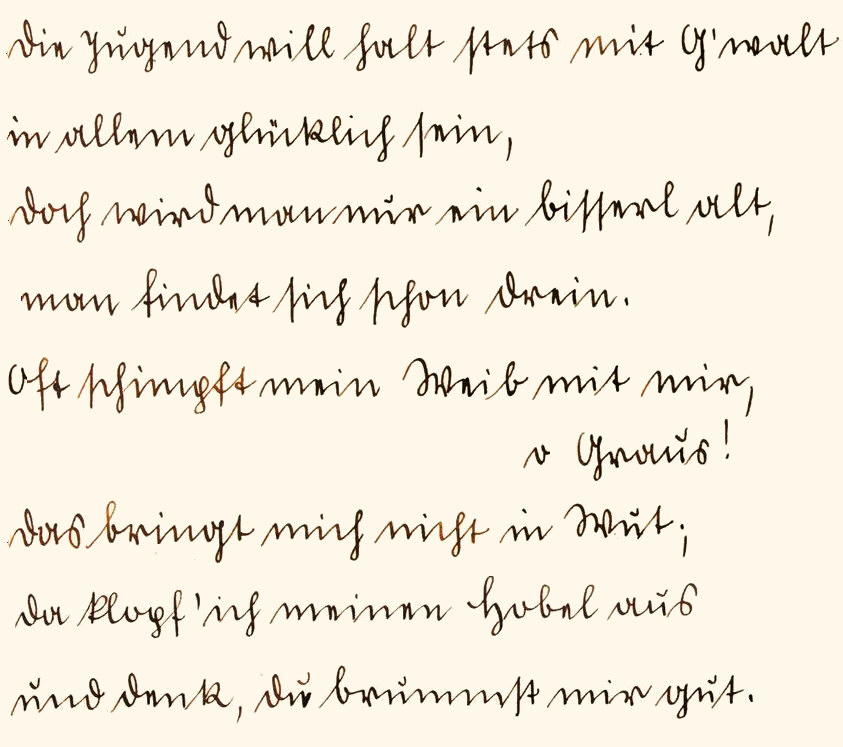 Die Jugend will halt stets mit G'walt
in allem glücklich sein,
doch wird man nur ein bisserl alt,
man findet sich schon drein.
Oft schimpft mein Weib mit mir,
o Graus!
das bringt mich nicht in Wut;
da klopf' ich meinen Hobel aus
und denk, du brummst mir gut.